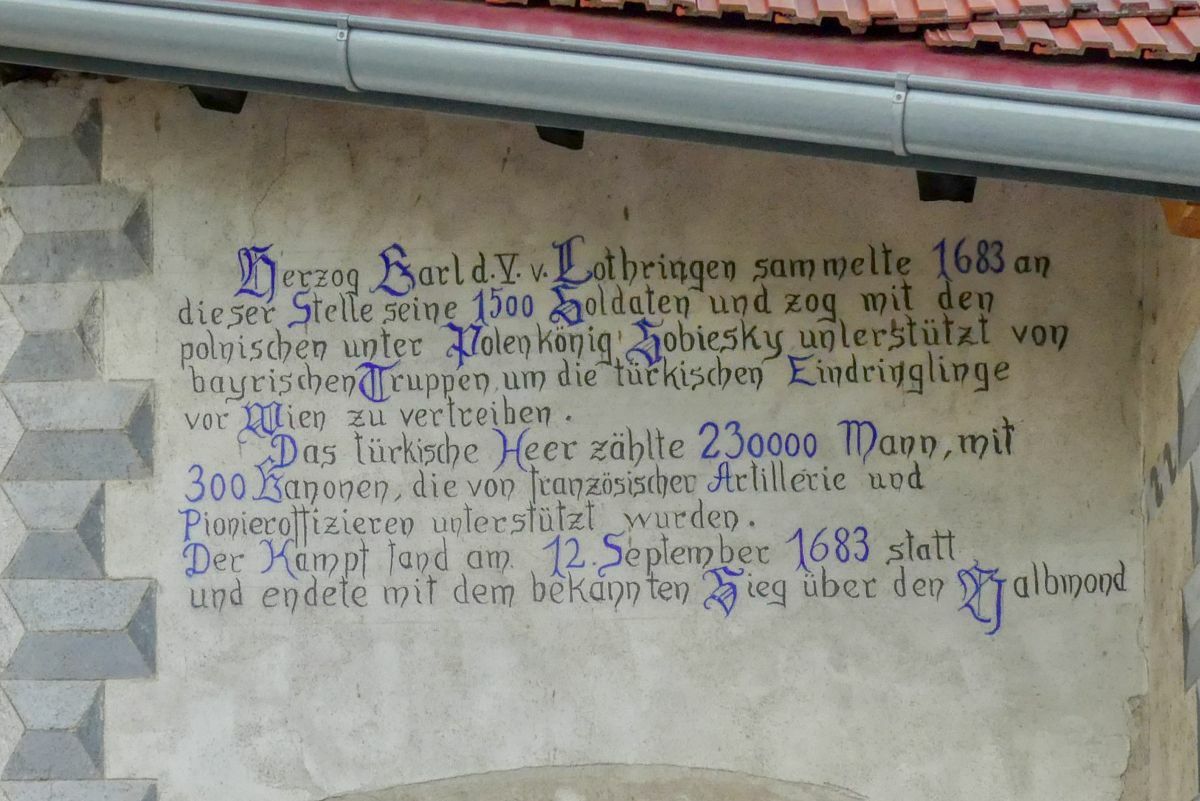 Herzog Karl d. V. v. Lothringen sammelte 1683 an
dieser Stelle seine 1500 Soldaten und zog mit den
polnischen unter Polenkönig Sobiesky unterstützt von
bayrischen Truppen um die türkischen Eindringlinge
vor Wien zu vertreiben.
Das türkische Heer zählte 230000 Mann, mit
300 Kanonen, die von französischer Artillerie und
Pionieroffizieren unterstützt wurden.
Der Kampf fand am 12. September 1683 statt
und endete mit dem bekannten Sieg über den Halbmond